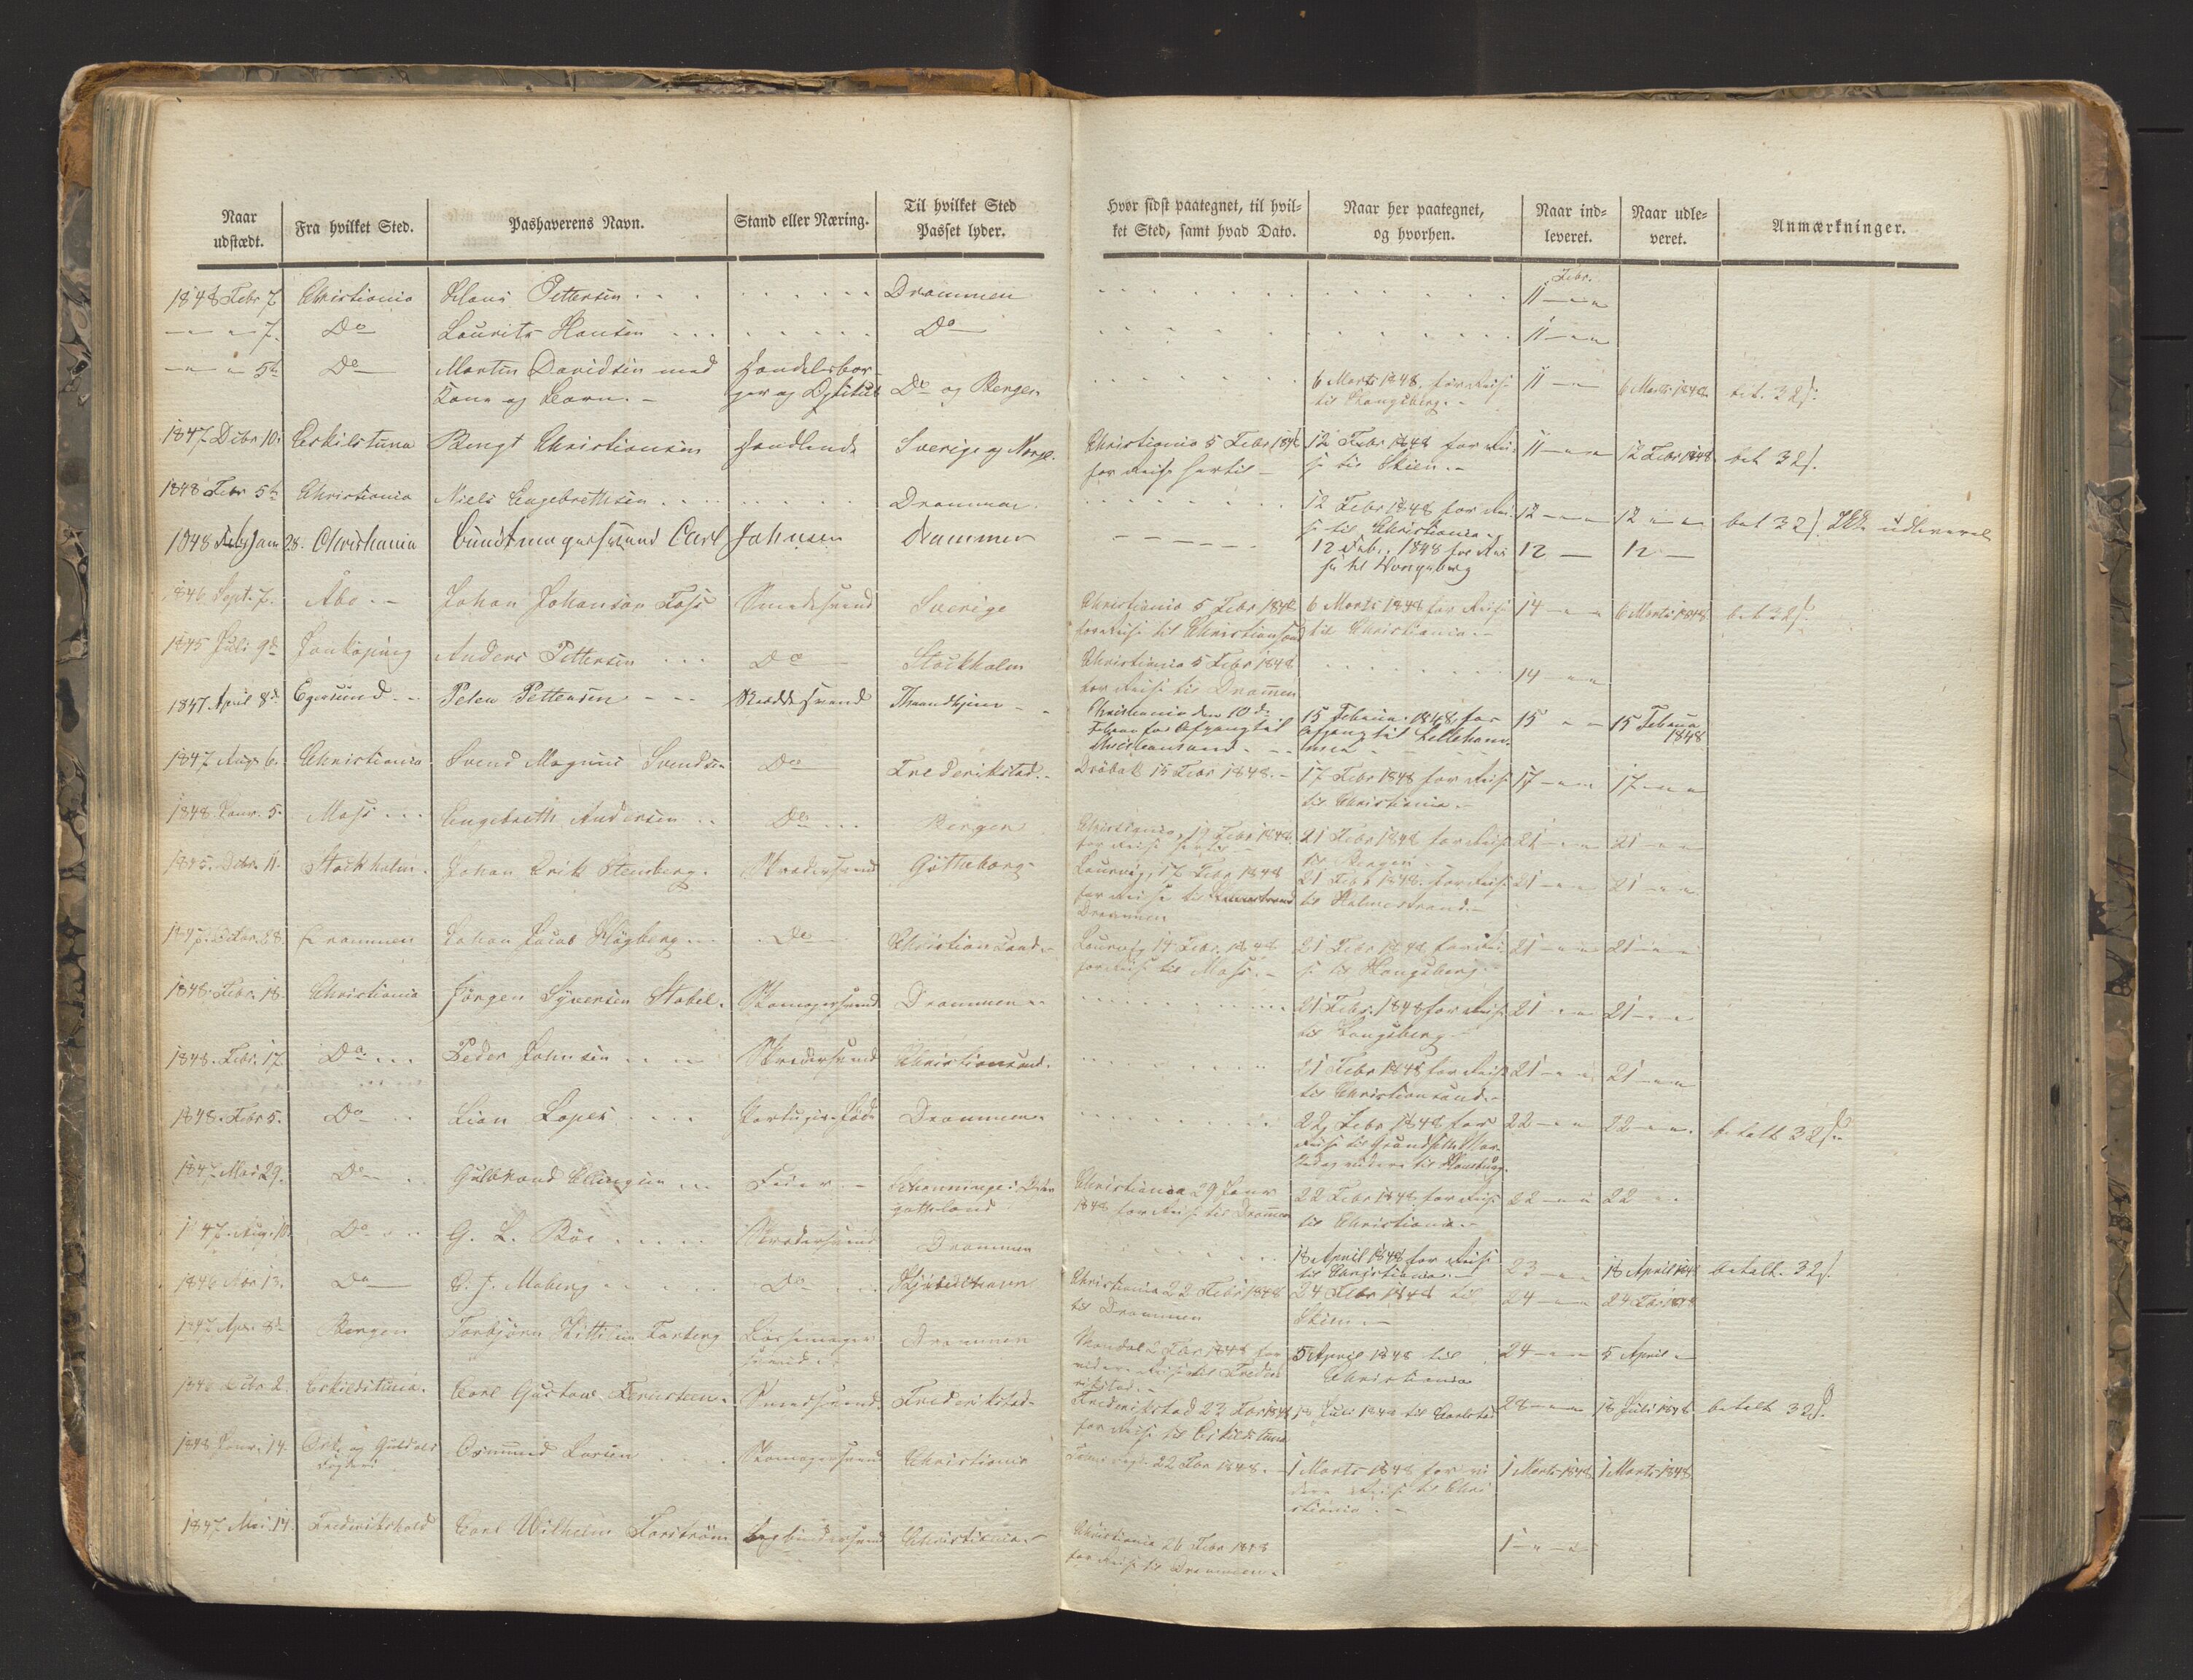 Naar udstædt. Fra hvilket Sted. Pashaverens Navn. Stand eller Næring. Til hvilket Sted Passet lyder. Hvor sidst paategnet, til hvilket Sted, samt hvad Dato. Naar her paategnet, og hvorhen. Naar indleveret. Naar udleveret. Anmærkninger.
1848 Febr 7 Christiania Hans Pettersen Drammen Febr. 11
7. Do Laurits Hansen Do 11
5te Do Martin Davidsen med Kone og Barn. Handelsborger og Do og Bergen 6 Marts 1848 for Reise til Kongsberg. 11 6 Marts 1848. bet. 32 s.
1847 Dcbr 10. Eskilstuna Bengt Christiansen Handlende Sverige og Norge. Christiania 5 Febr 1848 for Reise hertil 12 Febr 1848 for Reise til Skien. 11 12 Febr 1848. bet 32 s.
1848 Febr 5te Christiania Niels Engebrethsen Drammen. 12 Febr 1848 for Reise til Christiania. 12 12 bet 32 s. Ikke udleveret
1848 Jan 28. Christiania Buntmagersvend Carl Johnsen Drammen 12 Feb. 1848 for Reise til Kongsberg 12 12
1846 Sept. 7. Åbo Johan Johanson Foss Smedesvend Sverige Christiania 5 Febr 1848 for Reise til Christiansand 6 Marts 1848 for Reise til Christiania. 14 6 Marts 1848 bet 32 s.
1845 Juli 9de Jonkøping Anders Pettersen Do Stockholm Christiania 5 Febr 1848 for Reise til Drammen 14
1847 April 8de Egersund Peter Pettersen Skreddersvend Throndhjem Christiania den 10de Februar for Afgang til Christiansand 15 Februar 1848 for Afgang til Lillehammer 15 15 Februar 1848
1847 Aug. 6. Christiania Svend Magnus Svendsen Do Frederikstad. Drøbak 15 Febr 1848. 17 Febr 1848 for Reise til Christiania. 17 17
1848 Janr. 5. Moss Engebreth Andersen Do Bergen Christiania, 19 Febr 1848 for Reise hertil 21 Febr 1848 for Reise til Bergen 21 21
1845. Dcbr. 11. Stockholm. Johan Erik Stenberg. Skredersvend Gøttaborg Laurvig, 17 Febr 1848 for Reise til Drammen 21 Febr 1848. for Reise til Holmestrand. 21 21
28. Drammen Johan Jacob Högberg Do Christiansand. Laurvig 19 Febr. 1848 for Reise til Moss. 21 Febr 1848 for Reise til Kongsberg. 21 21
1848. Febr. 18. Christiania Jørgen Syversen Stabel. Skomagersvend Drammen 21 Febr. 1848 for Reise til Kongsberg 21 21
1848. Febr. 17. Do Peder Johnsen Skredersvend Christiansand. 21 Febr 1848 for Reise til Christiansand. 21 21
1848. Febr 5. Do Lion Lopes Portugis. Jøde Drammen. 22 Febr 1848 for Reise til Grundset Marked og videre til 22 22 betalt 32 s.
1847. Mai 29. Do Gulbrand Ellingsen Feier Christiania 29 Janr 1848 for Reise til Drammen 22 Febr 1848 for Reise til Christiania. 22 22
1847. Aug. 10. Do G. L. Böe Skredersvend Drammen 18 April 1848 for Reise til Christiania. 23 18 April 1848 betalt. 32 s.
1846 Nbr 13. Do C. J. Moberg Do Christiania 22 Febr 1848 til Drammen 24 Febr 1848 til Skien. 24 24 Febr 1848
1847 Apr. 8de Bergen Torbjørn Kittilsen Forberg Børsemagersvend Drammen Mandal Febr 1848 for videre Reise til Frederikstad. 5 April 1848 til Christiania 24 5 April
1846 Dcbr 2. Eskildstuna. Carl Gustav Smedsvend Frederikstad. Frederikstad 23 Febr 1848 for Reise til Eskildstuna 18 Juli 1848 til Carlstad 28 18 Juli 1848. betalt 32 s.
1848 Janr. 14. Ork og Guldals Fogderi Osmund Larsen Skomagersvend Christiania 22 Febr 1848. 1 Marts 1848 for videre Reise til Christiania. 1 Marts 1848 1 Marts 1848
1847. Mai. 14. Frederikshald Carl Wilhelm Forström Bogbindersvend Christiania. Christiania 26 Febr 1848 for Reise til Drammen. 1